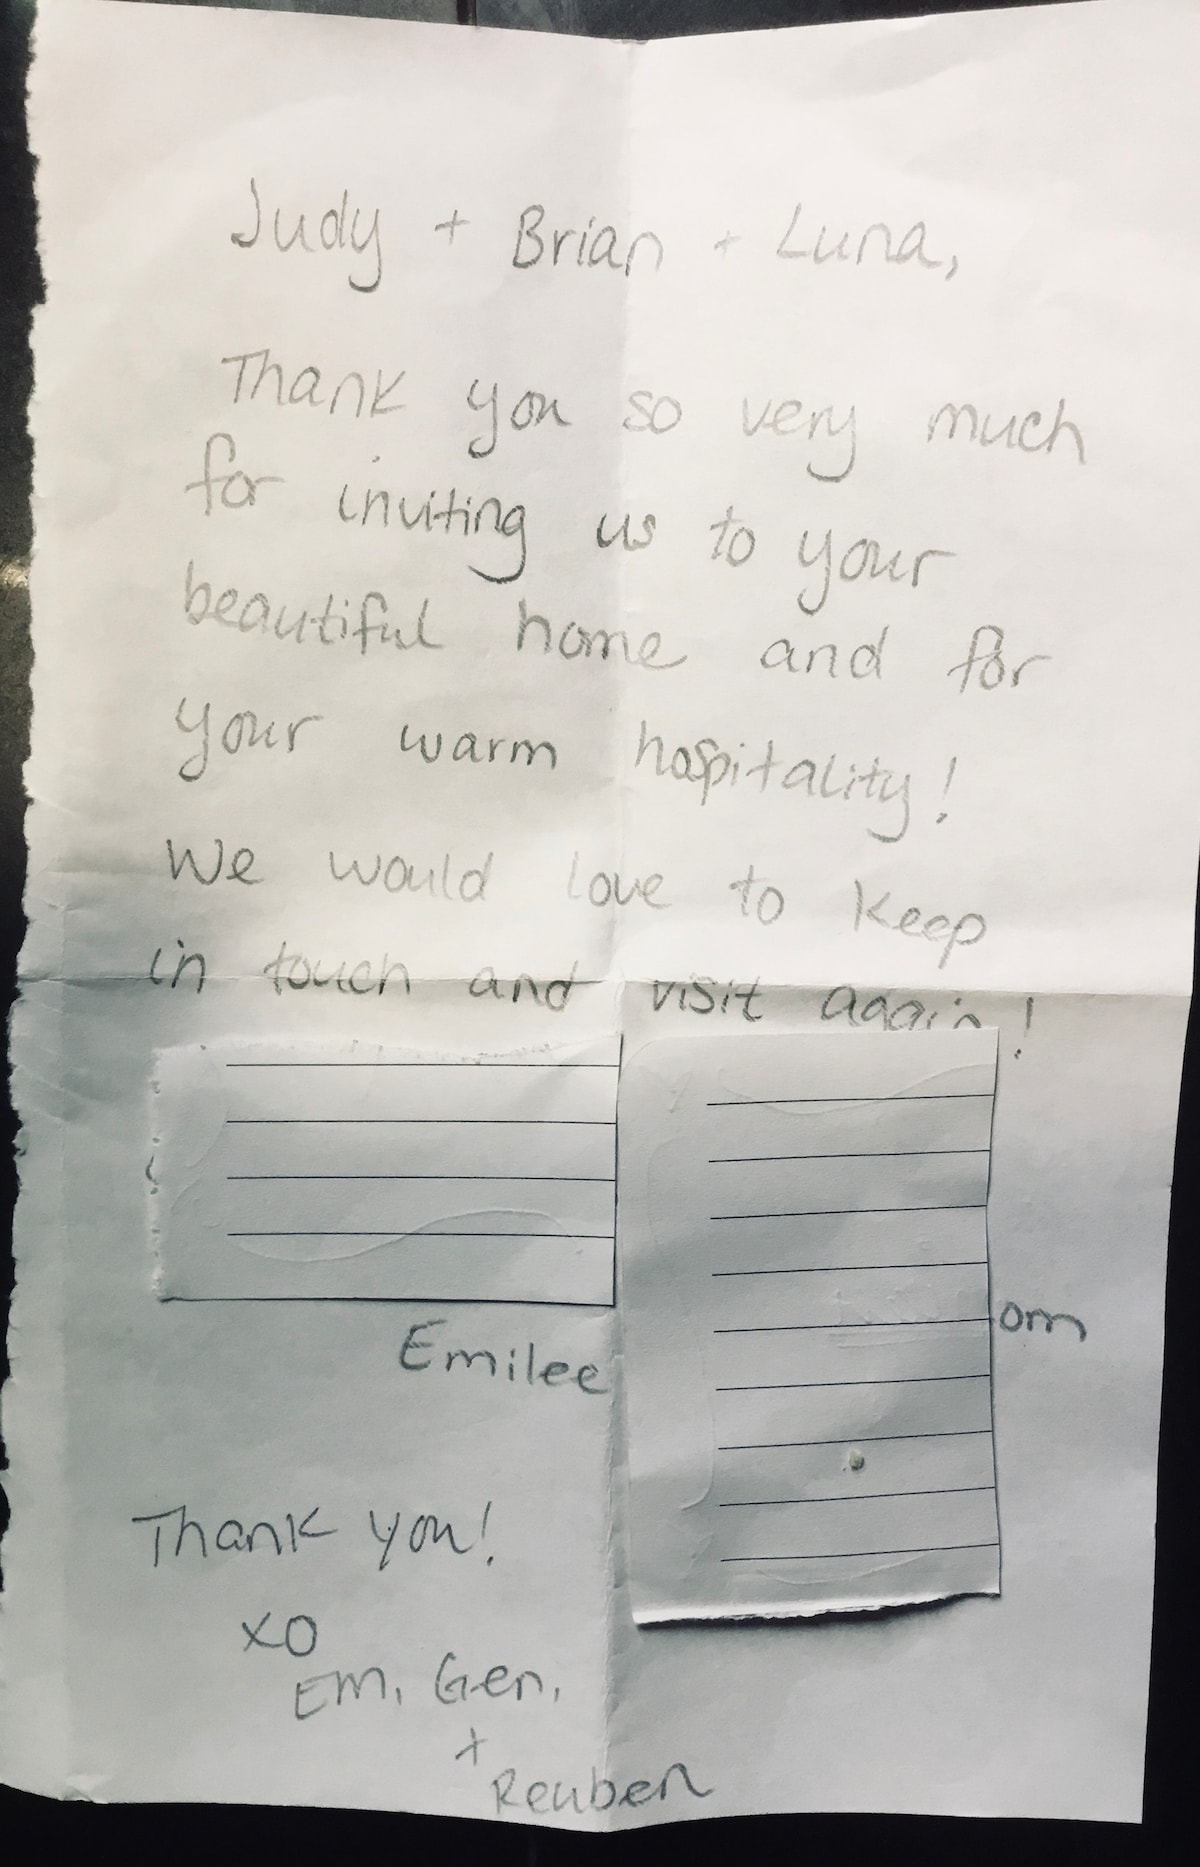 Judy + Brian + Luna,
Thank you so very much
for inviting us to your
beautiful home and for
your warm hospitality!
We would love to keep
in touch and visit again!
Emilee
om
Thank you!
XO
Em, Gen,
+
Reuben